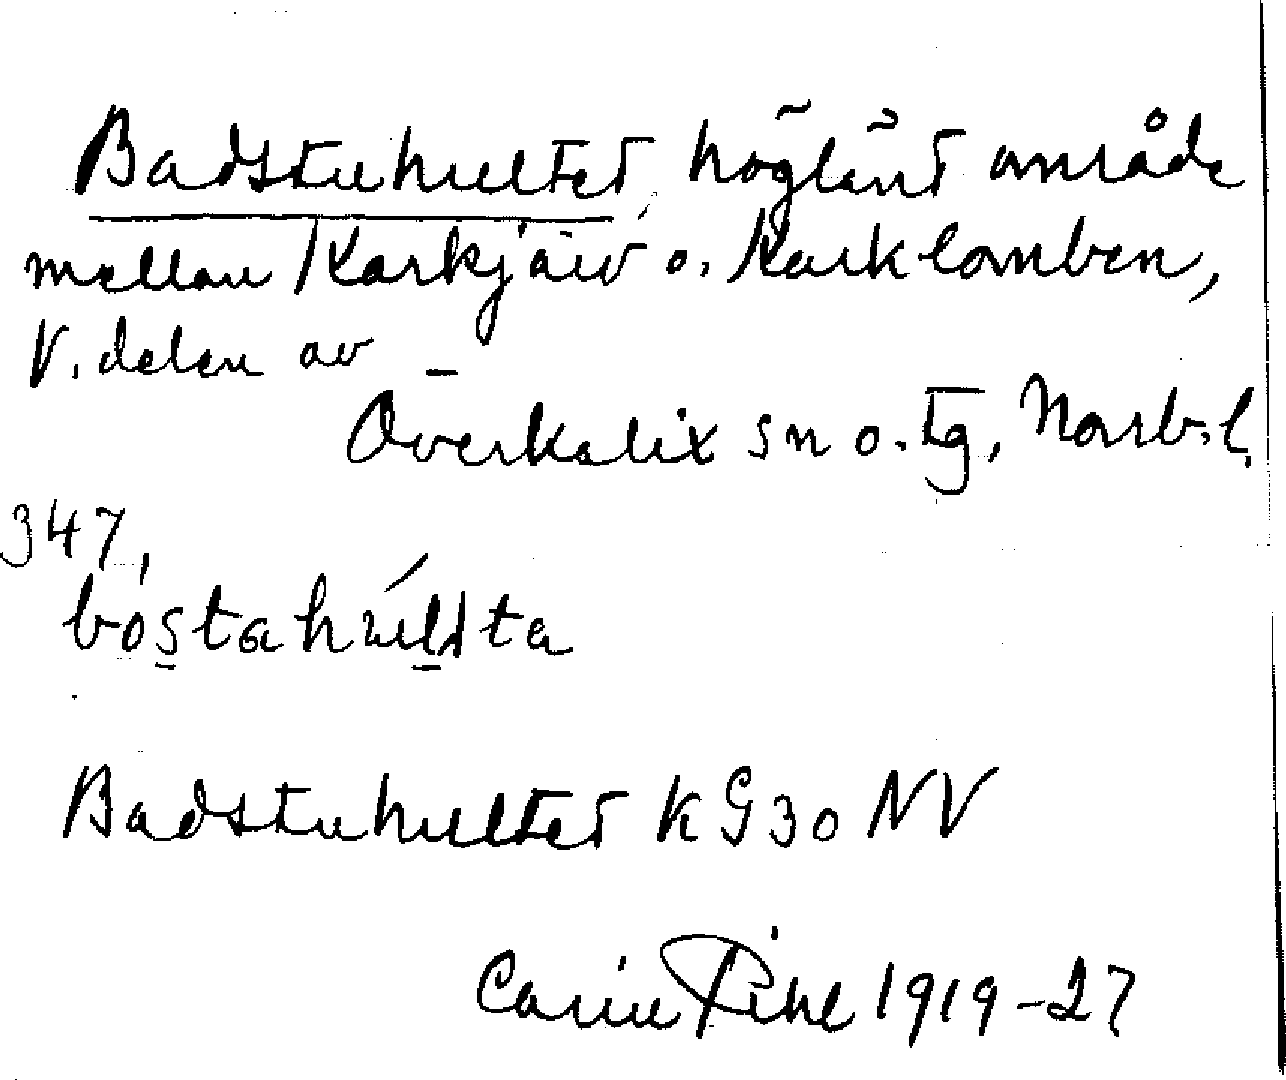 Badstuhultet, höglänt område
mellan Karkjärv o. Karklomben,
V. delen av
Överkalix sn o. tg, Norrb. l.
347,
bóstahúllta
Badstuhultet K G 30 NV
Carin Pihl 1919-27